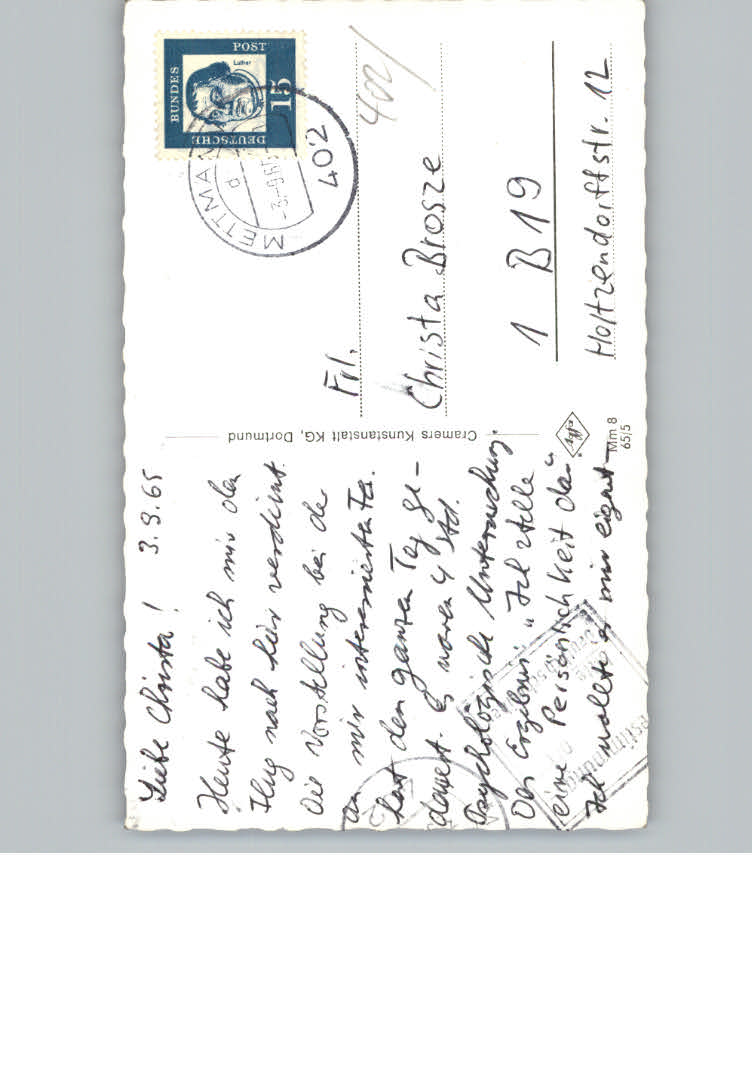 Liebe Christa! 3.9.65
Heute habe ich mir den
Flug nach hier verdient.
Die Vorstellung bei der
an mir interessierten Fa.
hat den ganzen Tag ge-
dauert. Es waren 4 Std.
Psychologische Untersuchung.
Das Ergebnis: "Ich stelle
eine Persönlichkeit dar"
Ich wollte es mir eigent-
DEUTSCHE
BUNDES
POST
Luther
15
METTMANN
d
-3.-9.65
402
402/
Frl.
Christa Brosze
1 B19
Holtzendorffstr. 12
Cramers Kunstanstalt KG, Dortmund
Agfa
Mm 8
65/5